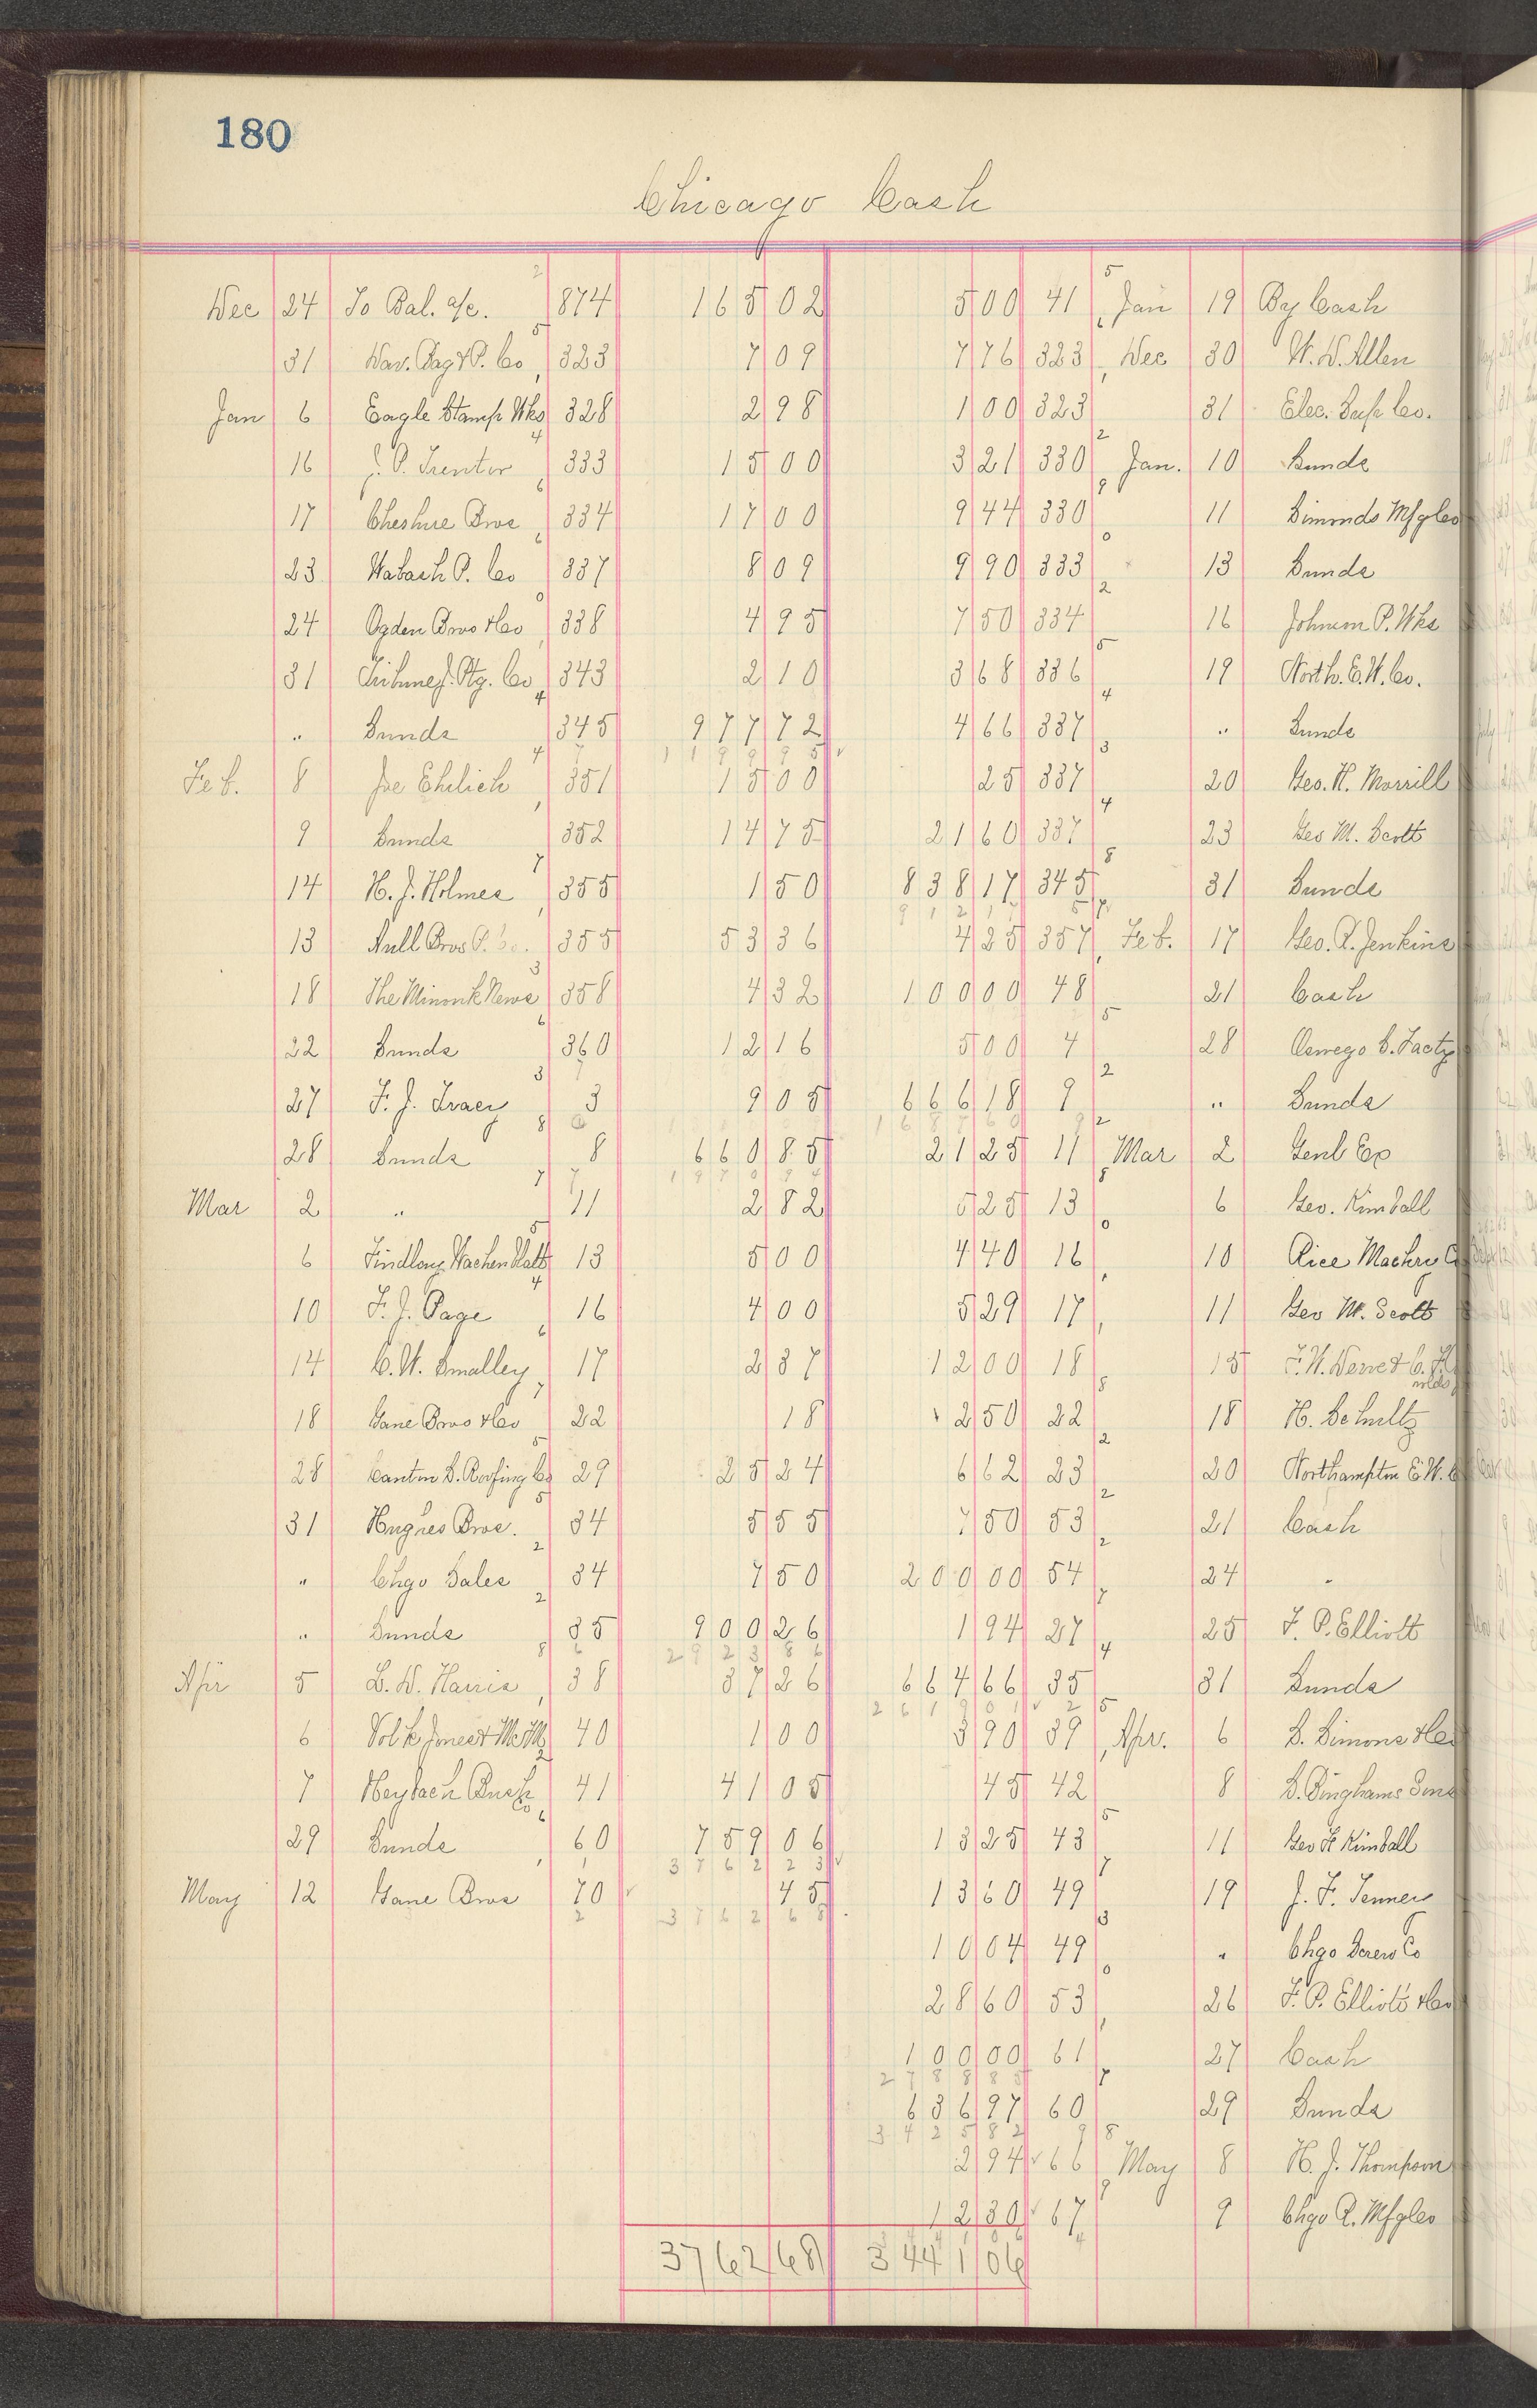 180
Chicago Cash
Dec 24 To Bal. a/c. 874 165 02 5 00 41 Jan 19 By Cash
31 Nav. Bag & P. Co 323 7 09 7 76 323 Dec 30 W. D. Allen
Jan 6 Eagle Stamp Wks 328 2 98 1 00 323 31 Elec. Sup. Co.
16 J. P. Trenter 333 15 00 3 21 330 Jan. 10 Sunds
17 Cheshire Bros 334 17 00 9 44 330 11 Simonds Mfg Co
23 Wabash P. Co 337 8 09 9 90 333 13 Sunds
24 Ogden Bros & Co 338 4 95 7 50 334 16 Johnson P. Wks
31 Tribune J. Ptg. Co 343 2 10 3 68 336 19 North. E. W. Co.
" Sunds 345 977 72 4 66 337 " Sunds
119995
Feb. 8 Joe Ehrlich 351 15 00 25 337 20 Geo. H. Morrill
9 Sunds 352 14 75 21 60 337 23 Geo M. Scott
14 H. J. Holmes 355 1 50 838 17 345 31 Sunds
13 Null Bros P. Co. 355 53 36 4 25 357 Feb. 17 Geo. R. Jenkins
18 The Minonk News 358 4 32 100 00 48 21 Cash
22 Sunds 360 12 16 5 00 4 28 Oswego C. Facty
27 F. J. Tracy 3 9 05 666 18 9 " Sunds
28 Sunds 8 660 85 21 25 11 Mar 2 Genl Ex
Mar 2 " 11 2 82 5 25 13 6 Geo. Kimball
6 Findlong Wachen 13 5 00 4 40 16 10 Rice Machry
10 F. J. Page 16 4 00 5 29 17 11 Geo M. Scott
14 C. W. Smalley 17 2 37 12 00 18 15
18 Gane Bros & Co 22 18 2 50 22 18 H. Schultz
28 Canton S. Roofing Co 29 25 24 6 62 23 20 Northampton E. W.
31 Hughes Bros. 34 5 55 7 50 53 21 Cash
" Chgo Sales 34 7 50 200 00 54 24 "
" Sunds 35 900 26 1 94 27 25 F. P. Elliott
292386
Apr 5 L. D. Harris 38 37 26 664 66 35 31 Sunds
6 Volk Jones & 40 1 00 3 90 39 Apr. 6 S. Simons & Co
7 Heybach Bush Co 41 41 05 45 42 8 S. Binghams Sons
29 Sunds 60 759 06 13 25 43 11 Geo H Kimball
376223
May 12 Gane Bros 70 45 13 60 49 19 J. F. Tenney
376268
10 04 49 " Chgo Screw Co
28 60 53 26 F. P. Elliott & Co
100 00 61 27 Cash
278885
636 97 60 29 Sunds
342582
2 94 66 May 8 H. J. Thompson
12 30 67 9 Chgo R. Mfg Co
3762 68 3441 06